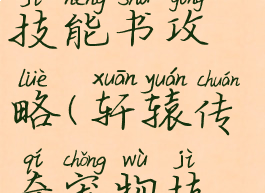 jì néng shū gōng
技能书攻
lüè xuān yuán chuán
略(轩辕传
qí chǒng wù jì
奇宠物技